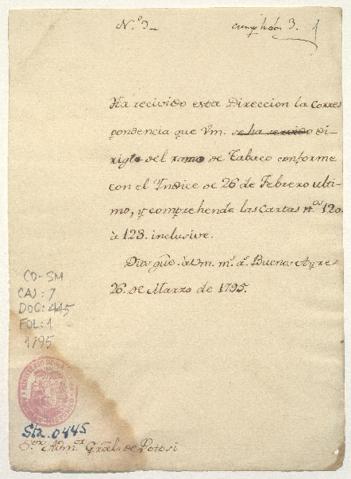 N.º 3
cumplido 3.
Ha recivido esta Direccion la Corres
pondencia que Vm. se ha servido di-
rigir del ramo de Tabaco conforme
con el Yndice de 26 de Febrero ulti-
mo, y comprehende las Cartas n.os 120
à 123. inclusive.
Dios gue. à Vm. m.s a.s Buenos Ayres
26. de Marzo de 1795.
CO-SM
CAJ: 7
DOC: 445
FOL: 1
1795
Sta. 0445
S.or Adm.or Gral. de Potosi